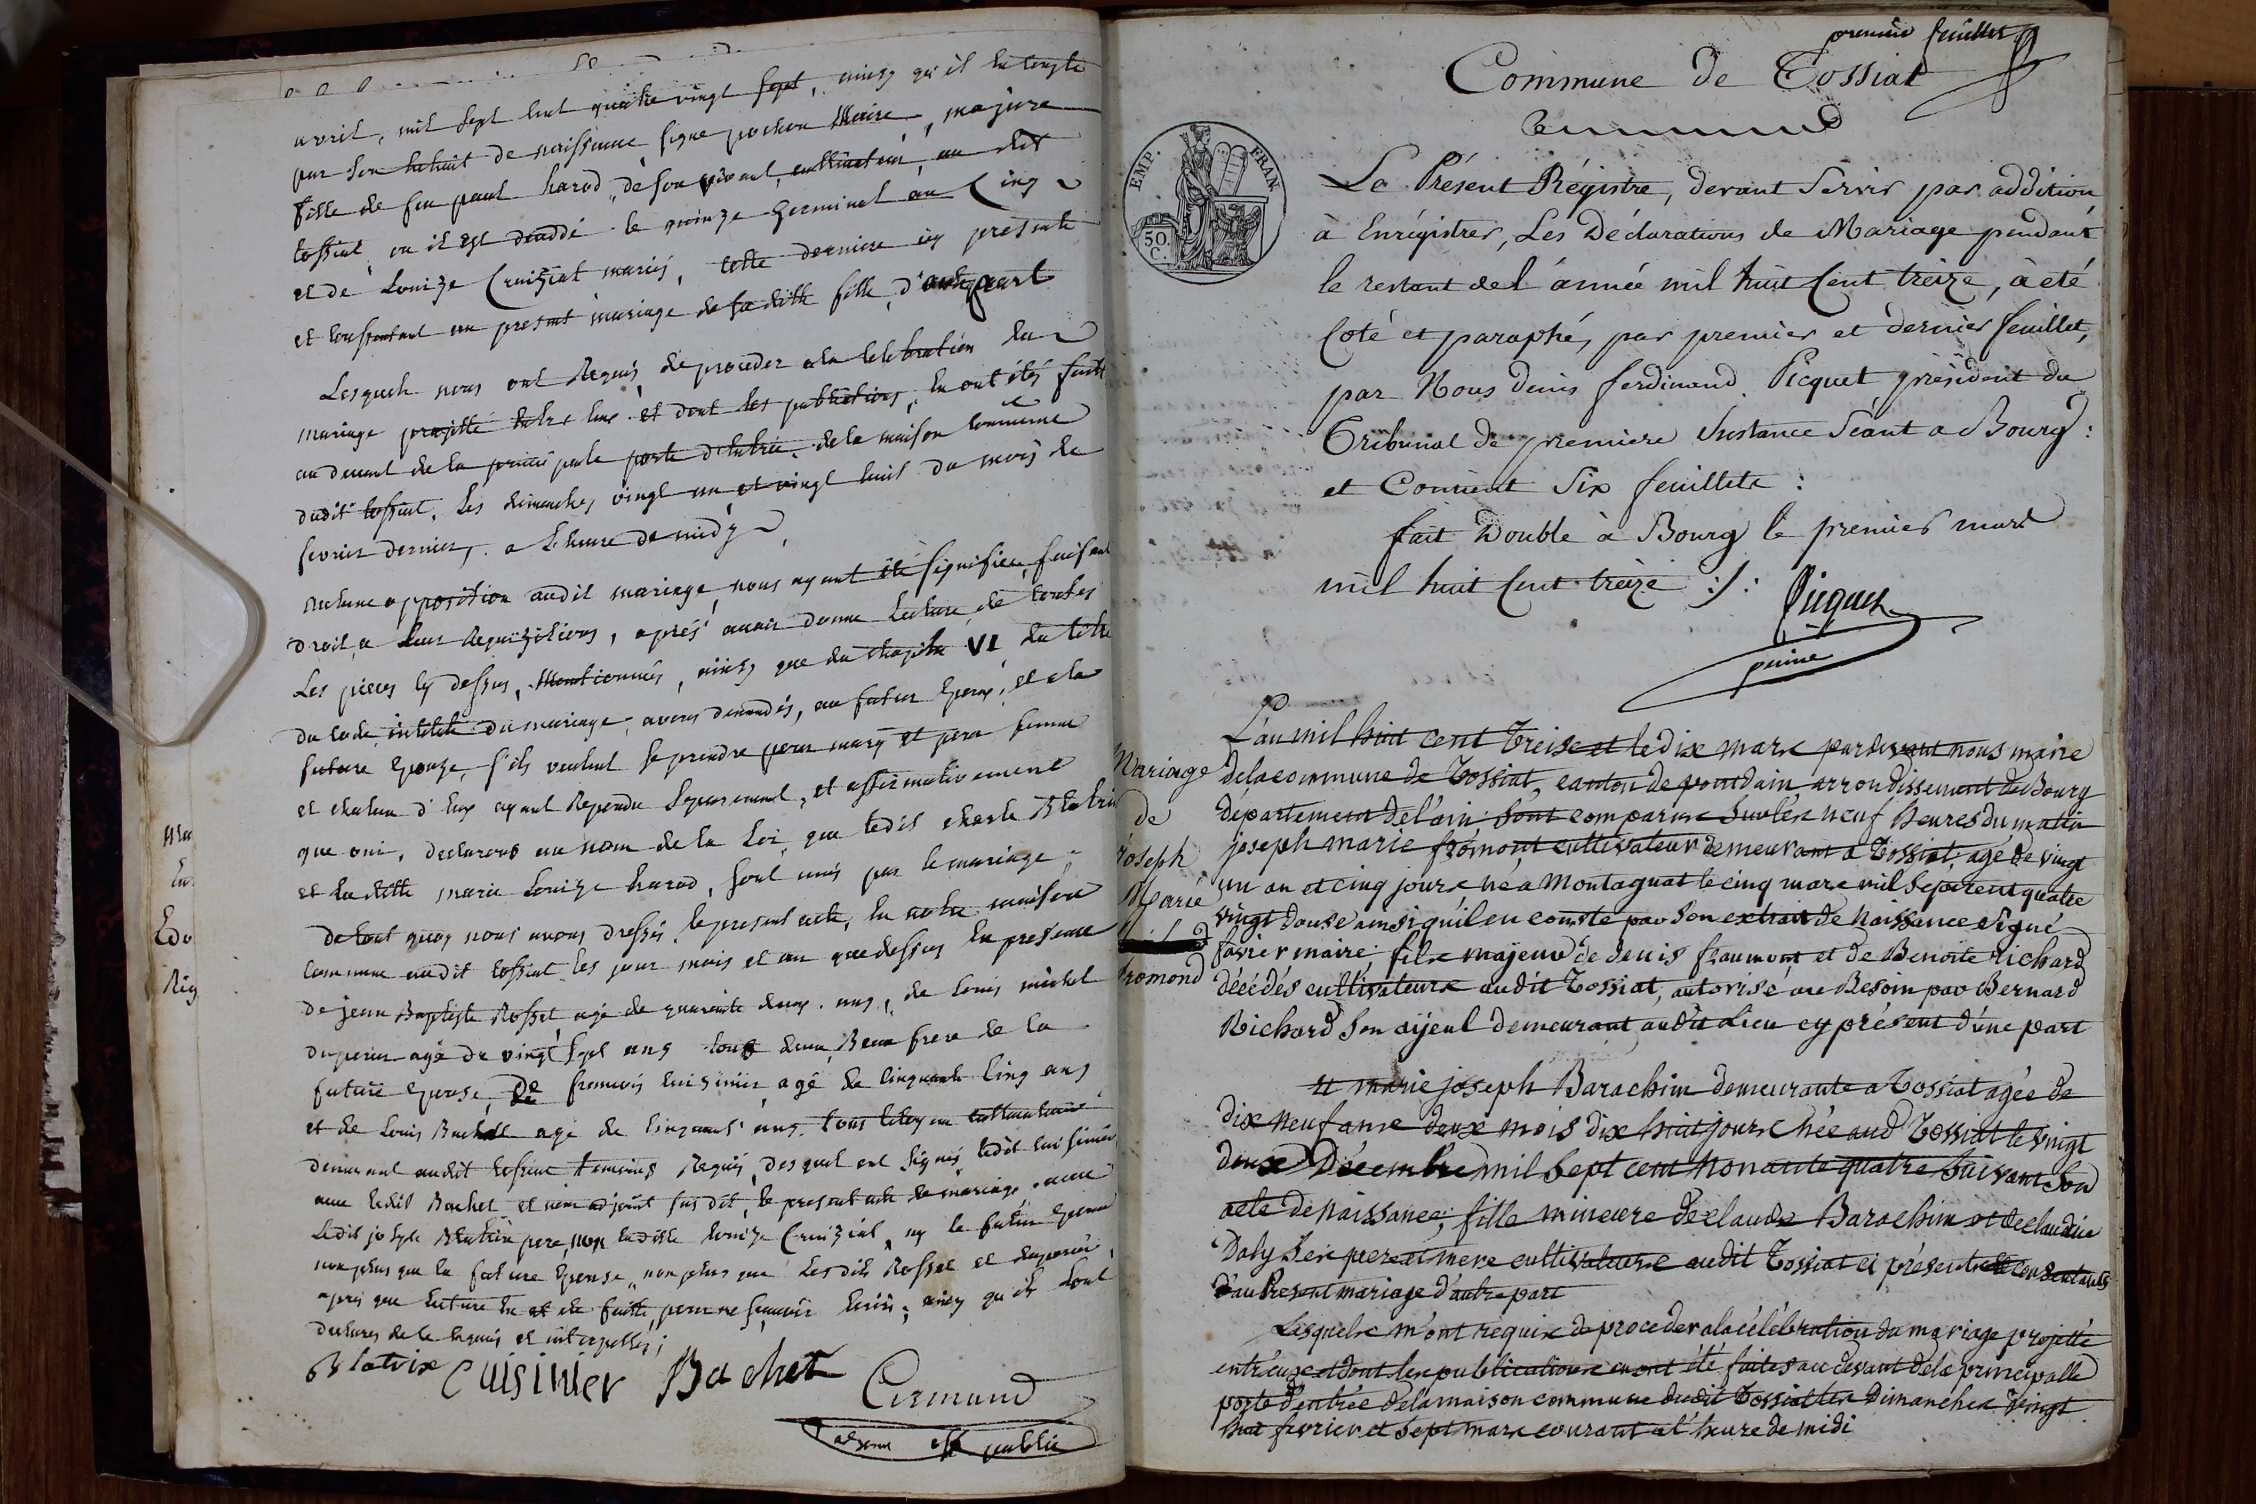 avril, mil sept cent quatre vingt sept, ainsy qu'il en conste
par son extrait de naissance signe pochon Maire, majure
fille de feu paul harod, de son vivant, cultivateur, au dit
tossiat, ou il est deceddé le quinze Germinal an Cinq
et de Louize Cruiziat mariés, cette derniere icy presente
et consentant au present mariage de sa ditte fille, d'autrepart
Lesquels nous ont Requis de proceder a la Celebration du
mariage projetté entre eux et dont les publications, en ont étés faittes
au devant de la principale porte d'entrée de la maison commune
dudit tossiat, Les dimanches vingt un et vingt huit du mois de
fevrier dernier, a L'heure de midy
Aucune opposition audit mariage, nous ayant été signifiée, faisant
droit, a leur Requizitions, aprés avoir donne Lecture de toutes
Les pieces cy dessus, Mentionnés, ainsy que du chapitre VI du titre
du Code intitulé du mariage, avons demandés, au futur Epoux, et a la
future Epouze, s'ils veulent se prendre pour mary et pour femme
et chacun d'eux ayant Repondu separement, et affirmativement
que oui, declarons au nom de la Loi, que ledit
et la ditte marie Louize harod, sont unis par le mariage
de tout quoy nous avons dressés le present acte, en notre maison
Commune audit tossiat les jour mois et an que dessus en presence
de jean Baptiste Rosset, agé de quarante deux ans, de Louis michel
duperier agé de vingt sept ans tous deux Beau frere de la
future Epouse, De francois Cuisinier, agé de Cinquante Cinq ans
et de Louis Bachet agé de Cinquante ans, tous
demeurant audit tossiat temoins Requis, desquel ont signés ledit Cuisinier,
avec ledit Bachet et nous adjoint sus dit, le present acte de mariage, avec
Ledit père, non ladite Louize Cruiziat, ny le futur Epoux
non plus que la future Epouse, non plus que Les dits Rosset et duperier,
aprés que Lecture en et été faitte, pour ne scavoir Ecrire, ainsy qu'ils l'ont
declarés de ce Enquis et interpellés;
Blatrix Cuisinier Bachet Cirmand
off public
premier feuillet
Commune de Tossiat
EMP. FRAN.
50. C.
Le Présent Régistre, devant Servir par addition,
à Enrégistrer, Les Déclarations de Mariage pendant
le restant del'année mil huit Cent treize, à eté
Coté et paraphé, par premier et dernier feuillet,
par Nous denis ferdinand Picquet président du
Tribunal de premiere Instance Séant a Bourg :
et Contient Six feuillets :
fait Double à Bourg le premier mars
mil huit Cent treize :/:
Picquet
Mariage
de
joseph
Marie
fromond
L'an mil huit cent treise et le dix mars pardevant nous maire
dela commune de Tossiat, canton de pontdain arrondissement de Bourg
département del'ain Sont comparus Surles neuf heures du matin
joseph marie frómont cultivateur demeurant a Tossiat, agé de vingt
un an et cinq jours né a Montagnat le cinq mars mil Septcent quatre
vingt douse ainsi qu'il en conste par son extrait de Naissance Signé
favier maire, fils majeur de denis fraumont et de Benoite Richard
décédés cultivateurs audit Tossiat, autorisé au Besoin par Bernard
Richard Son aijeul demeurant audit Lieu cy présent d'une part
et marie joseph Barachin demeurante a Tossiat agée de
dix neuf ans deux mois dix huit jours Née aud Tossiat le vingt
deux Décembre mil Sept cent Nonante quatre Suivant Son
acte de Naissance, fille mineure de claude Barachin et de claudine
Daly Ses pere et mere cultivateurs audit Tossiat ci présents et consentants
d'au Present mariage d'autre part
Lesquels m'ont requis de proceder a la célébration du mariage projetté
entr'eux et dont les publications en ont été faites au devant dela principalle
porte d'entrée dela maison commune dudit Tossiat les Dimanches vingt
huit fevrier et Sept mars courant a l'heure de midi